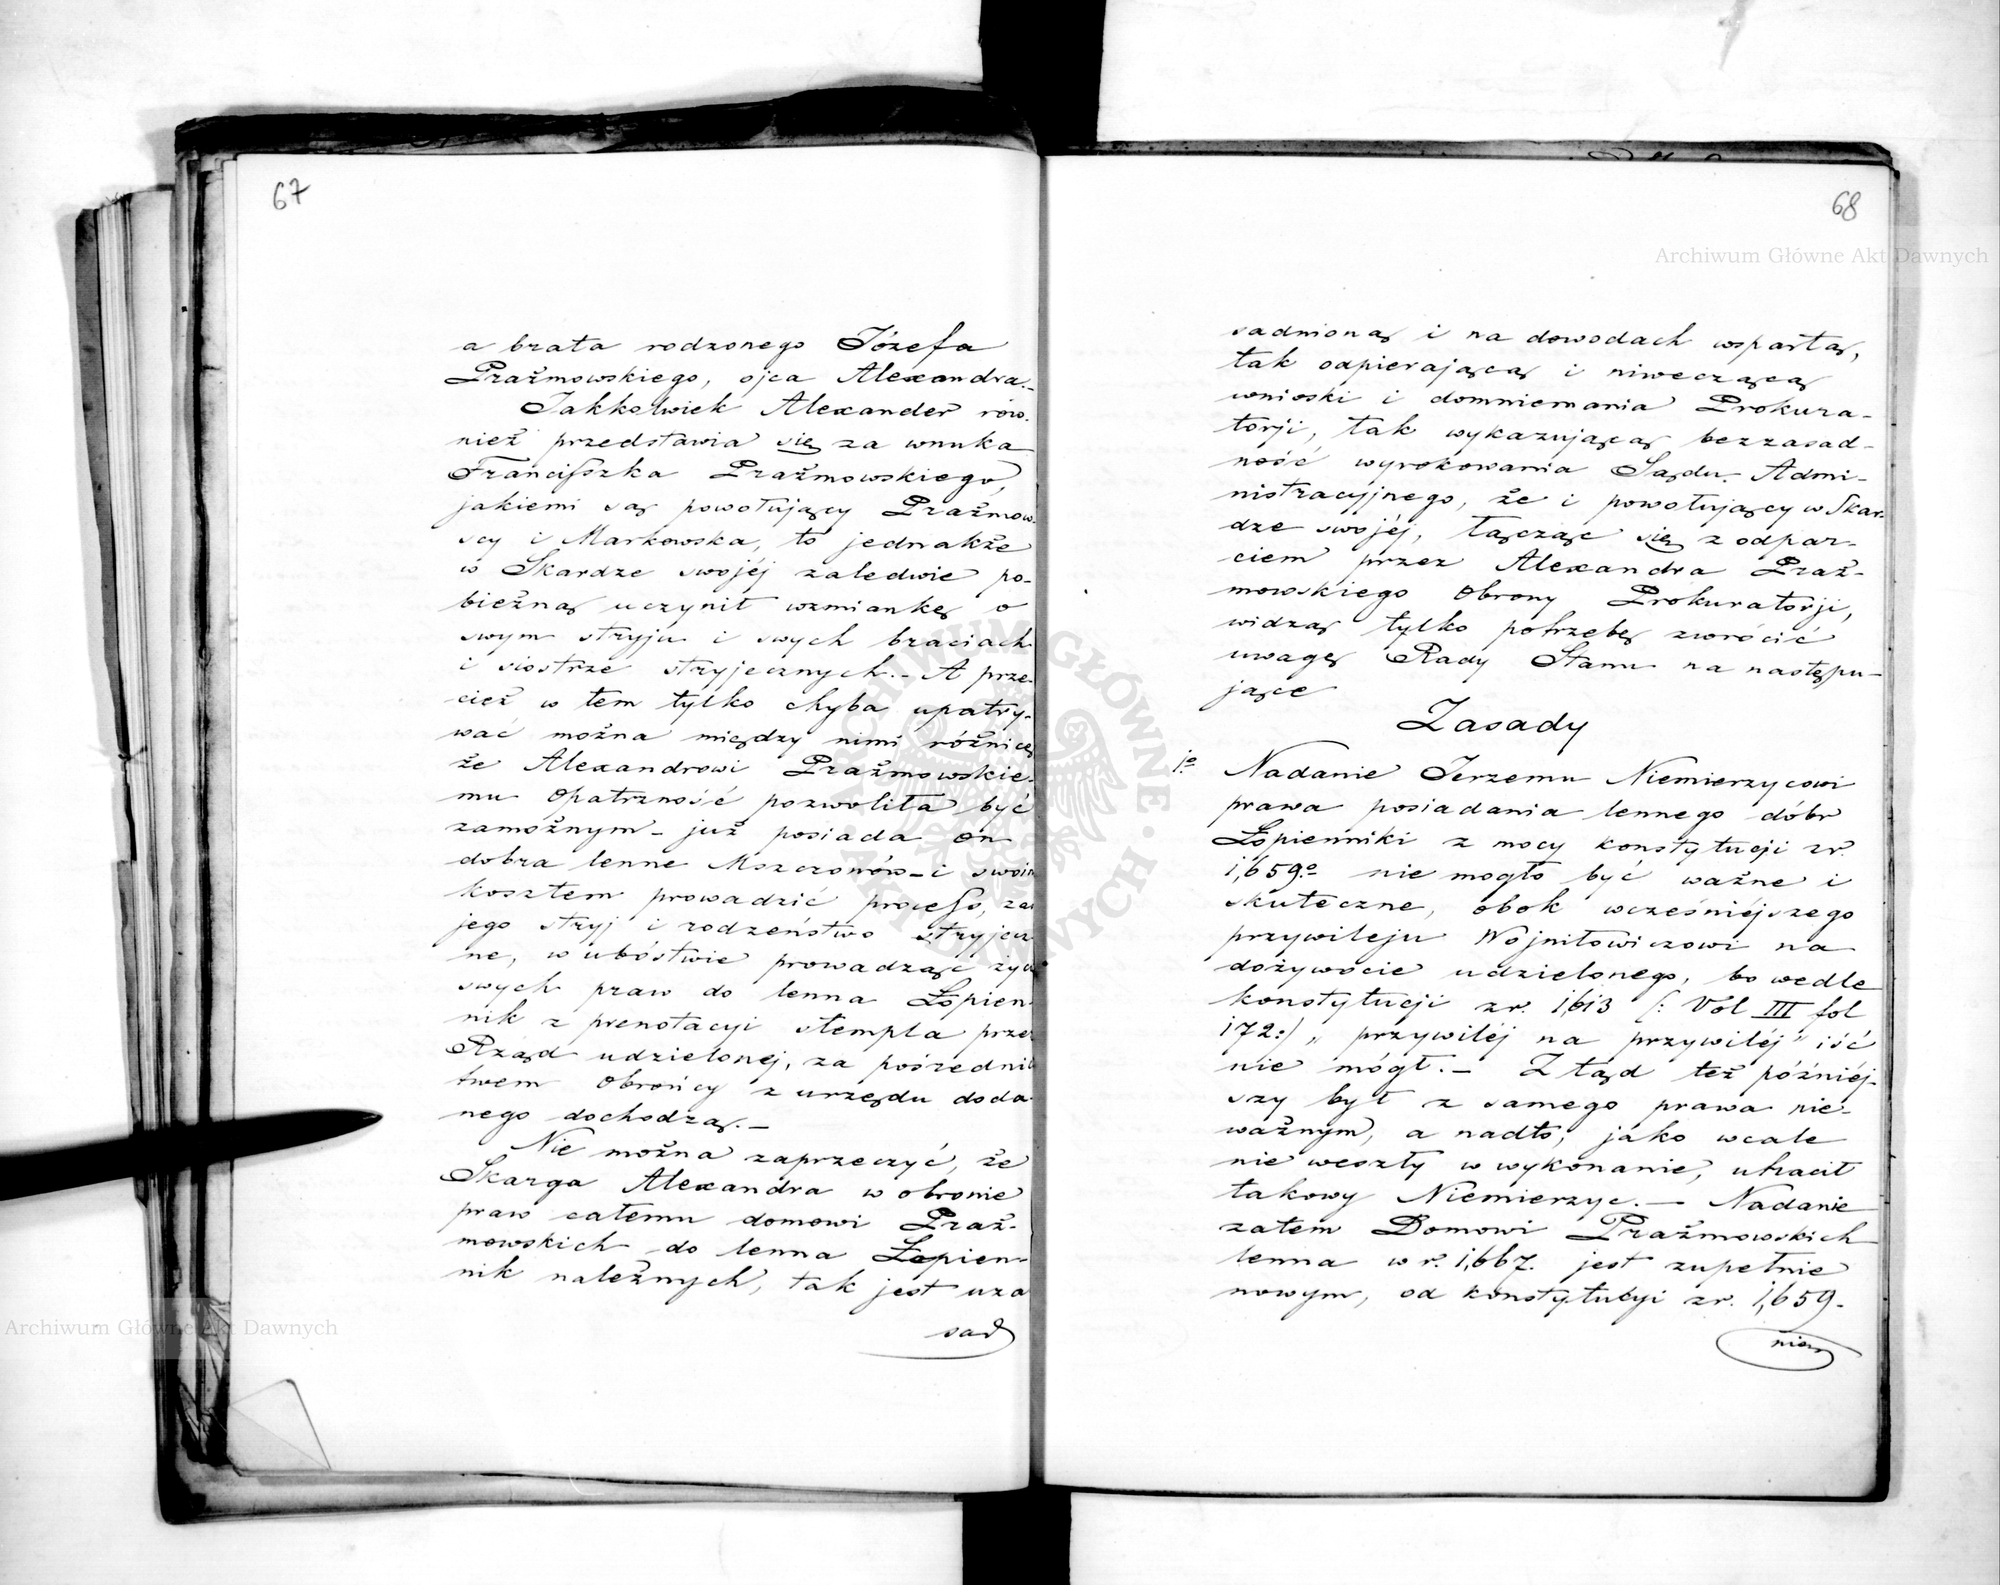 67
a brata rodzonego Józefa
Prażmowskiego, ojca Alexandra.-
Jakkolwiek Alexander rów-
nież przedstawia się za wnuka
Franciszka Prażmowskiego,
jakiemi są powołujący Prażmow-
scy i Markowska, to jednakże
w Skardze swojéj zaledwie po-
bieżną uczynił wzmiankę o
swym stryju i swych braciach
i siostrze stryjecznych.- A prze-
cież w tem tylko chyba upatry-
wać można między nimi różnicę
że Alexandrowi Prażmowskie-
mu Opatrzność pozwoliła być
zamożnym - już posiada on
dobra lenne Mszczonów - i swoim
kosztem prowadzić process, zaś
jego stryj i rodzeństwo stryjecz
ne, w ubóstwie prowadząc życie
swych praw do lenna Łopien
nik z prenotacyi stempla przez
Rząd udzielonej, za pośrednic
twem Obrońcy z urzędu doda
nego dochodzą.-
Nie można zaprzeczyć, że
Skarga Alexandra w obronie
praw całemu domowi Praż-
mowskich do lenna Łopien-
nik należnych, tak jest uza
sad
68
Archiwum Główne Akt Dawnych
sadnioną i na dowodach wspartą,
tak odpierającą i niweczącą
wnioski i domniemania Prokura-
torji, tak wykazującą bezzasad-
ność wyrokowania Sądu Admi-
nistracyjnego, że i powołujący w Skar-
dze swojéj, łącząc się z odpar-
ciem przez Alexandra Praż-
mowskiego Obrony Prokuratorji,
widzą tylko potrzebę zwrócić
uwagę Rady Stanu na następu-
jące
Zasady
1o Nadanie Jerzemu Niemierzycowi
prawa posiadania lennego dóbr
Łopienniki z mocy konstytucji z r.
1,659.o nie mogło być ważne i
skuteczne, obok wcześniéjszego
przywileju Wojniłowiczowi na
dożywocie udzielonego, bo wedle
konstytucji z r. 1,613 /: Vol III fol
172:/ „przywiléj na przywiléj" iść
nie mógł.- Ztąd też późniéj-
szy był z samego prawa nie-
ważnym, a nadto, jako wcale
nie weszły w wykonanie, utracił
takowy Niemierzyc.- Nadanie
zatem Domowi Prażmowskich
lenna w r. 1,667. jest zupełnie
nowym, od konstytucyi z r. 1,659.
Archiwum Główne Akt Dawnych
ARCHIWUM GŁÓWNE AKT DAWNYCH